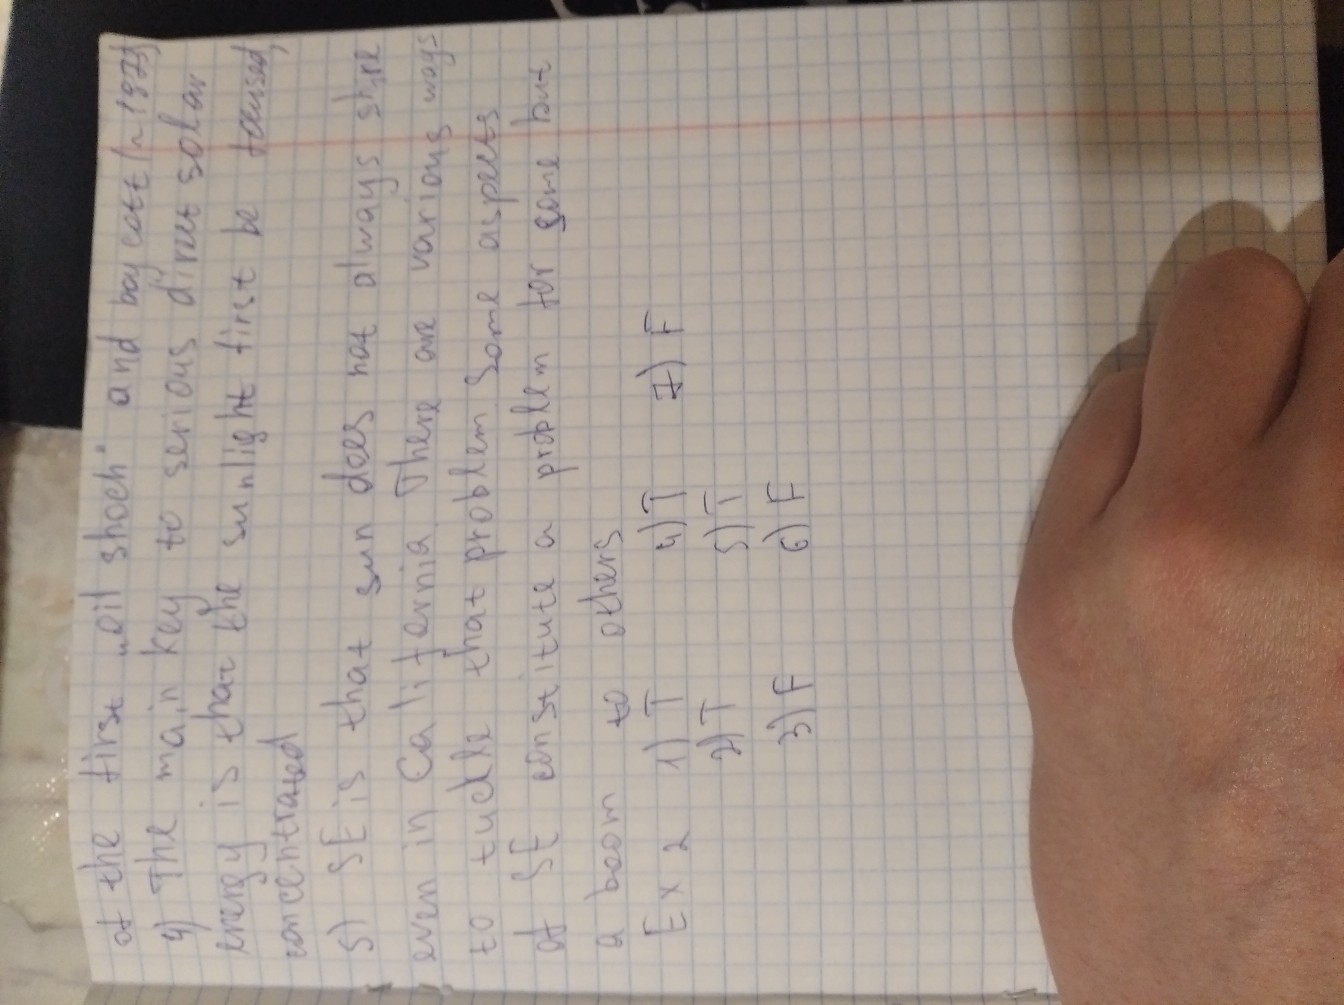 of the first "oil shock" and boycott (~1973)
4) The main key to serious direct solar
energy is that the sunlight first be focused,
concentrated
5) SE is that sun does not always shine
even in California There are various ways
to tuckle that problem Some aspects
of SE constitute a problem for some but
a boom to others
Ex 2 1) T 4) T 7) F
2) T 5) T
3) F 6) F